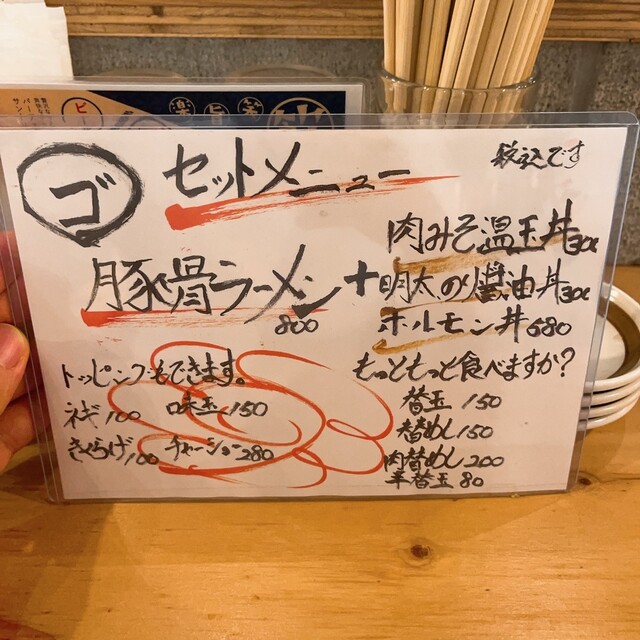 ゴ
セットメニュー
税込です
豚骨ラーメン+
800
肉みそ温玉丼300
明太のり醤油丼300
ホルモン丼680
トッピングもできます。
ネギ100 味玉150
きくらげ100 チャーシュー280
もっともっと食べますか?
替玉 150
替めし150
肉替めし200
半替玉 80